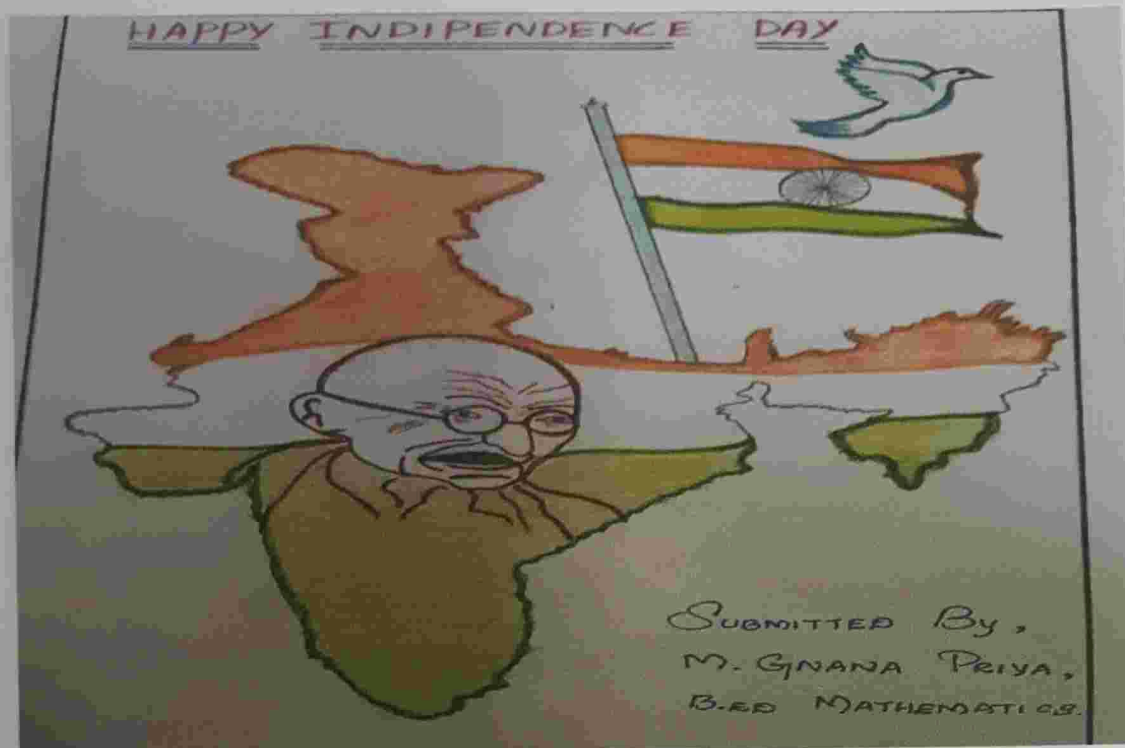 HAPPY INDIPENDENCE DAY
SUBMITTED By,
M. GNANA PRIYA,
B.ED MATHEMATICS.